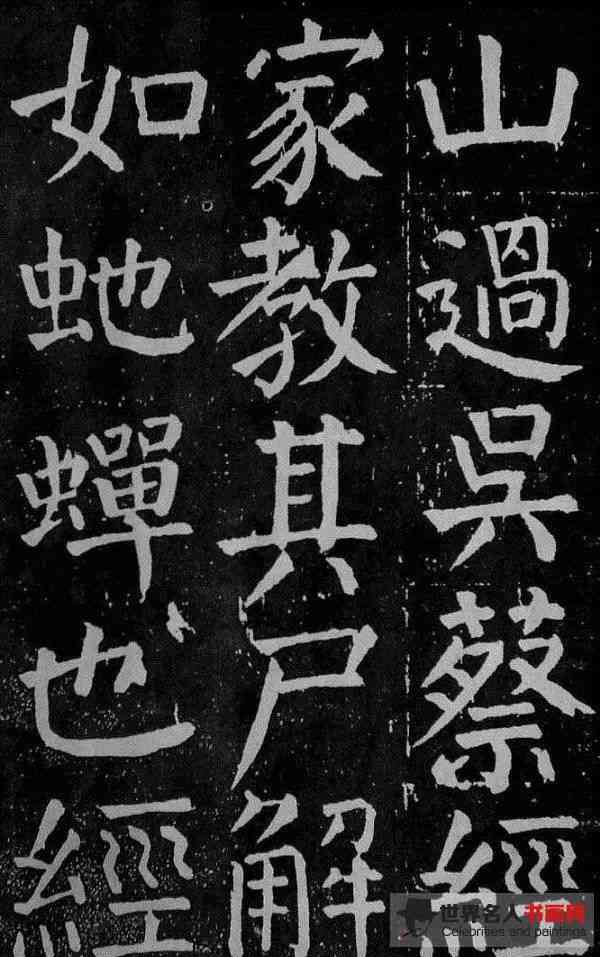 山過吳蔡經
家教其尸解
如虵蟬也經
世界名人书画网
Celebrities and paintings